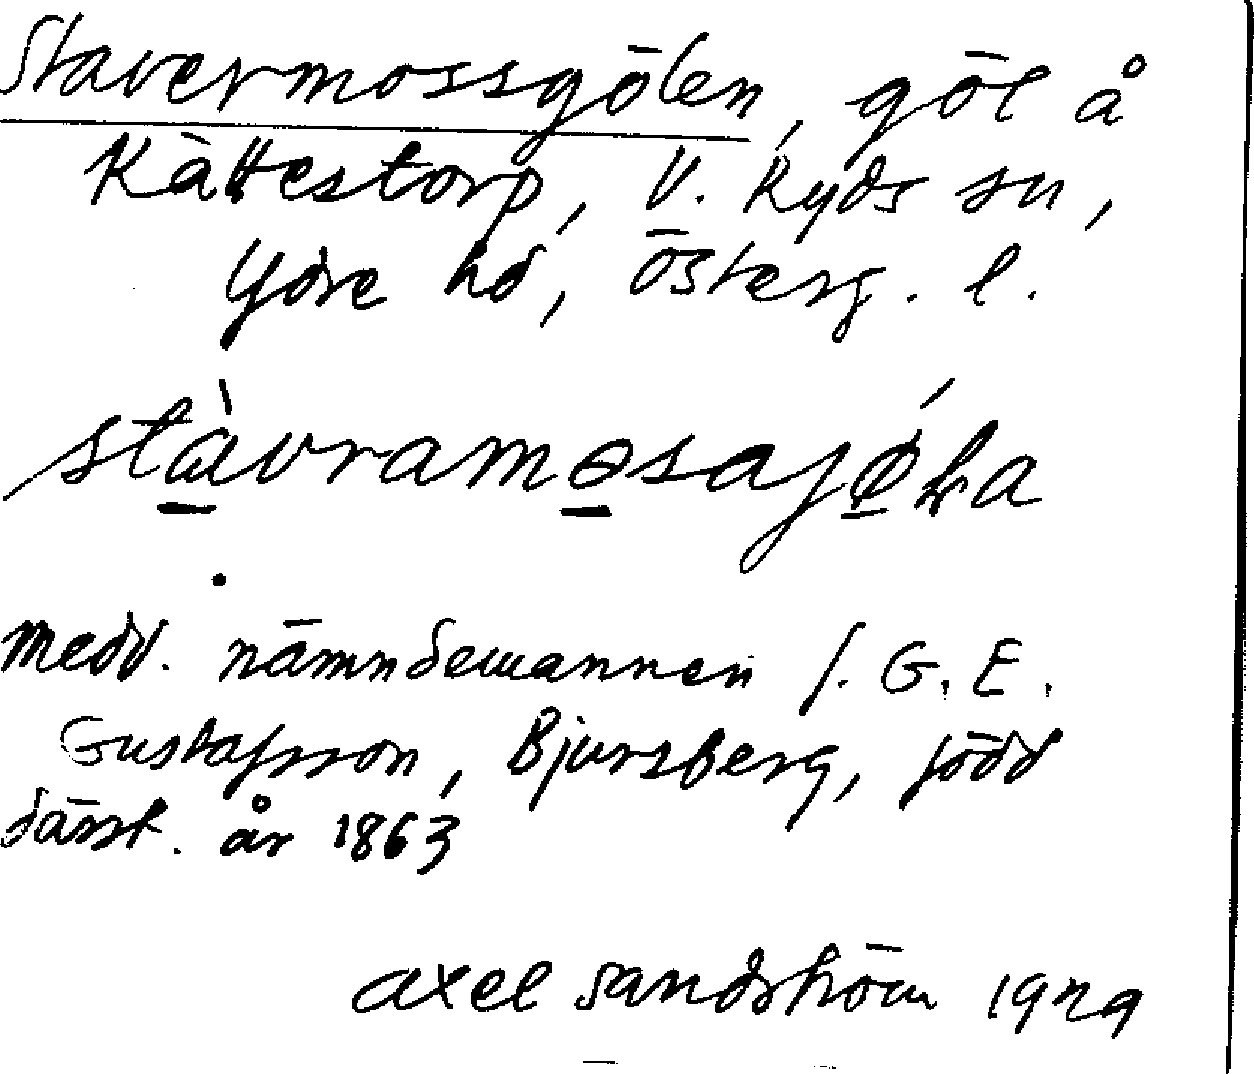 Stavermossgölen, göl å
Kättestorp, V. Ryds sn,
Ydre hd, Österg. l.
stàvramosajǿla
medd. nämndemannen f. G. E.
Gustafsson, Bjursberg, född
därst. år 1863
Axel Sandström 1929